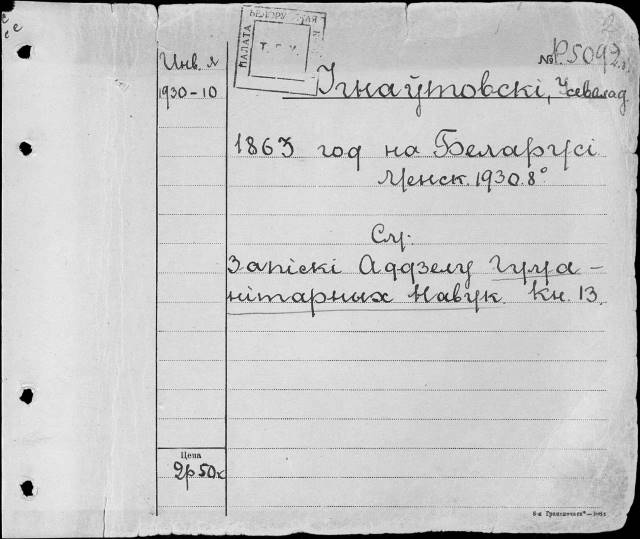 БЕЛОРУ
ПАЛАТА
№ Р.5092
Инв. №
1930-10
Ігнаўтовскі, Усевалад
1863 год на Беларусі
Менск. 1930. 8°
См:
Запіскі Аддзелу Гума-
нітарных Навук. Кн. 13.
Цена
2р 50к